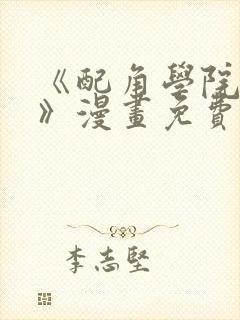 《配角學院
》漫畫免費
李志堅